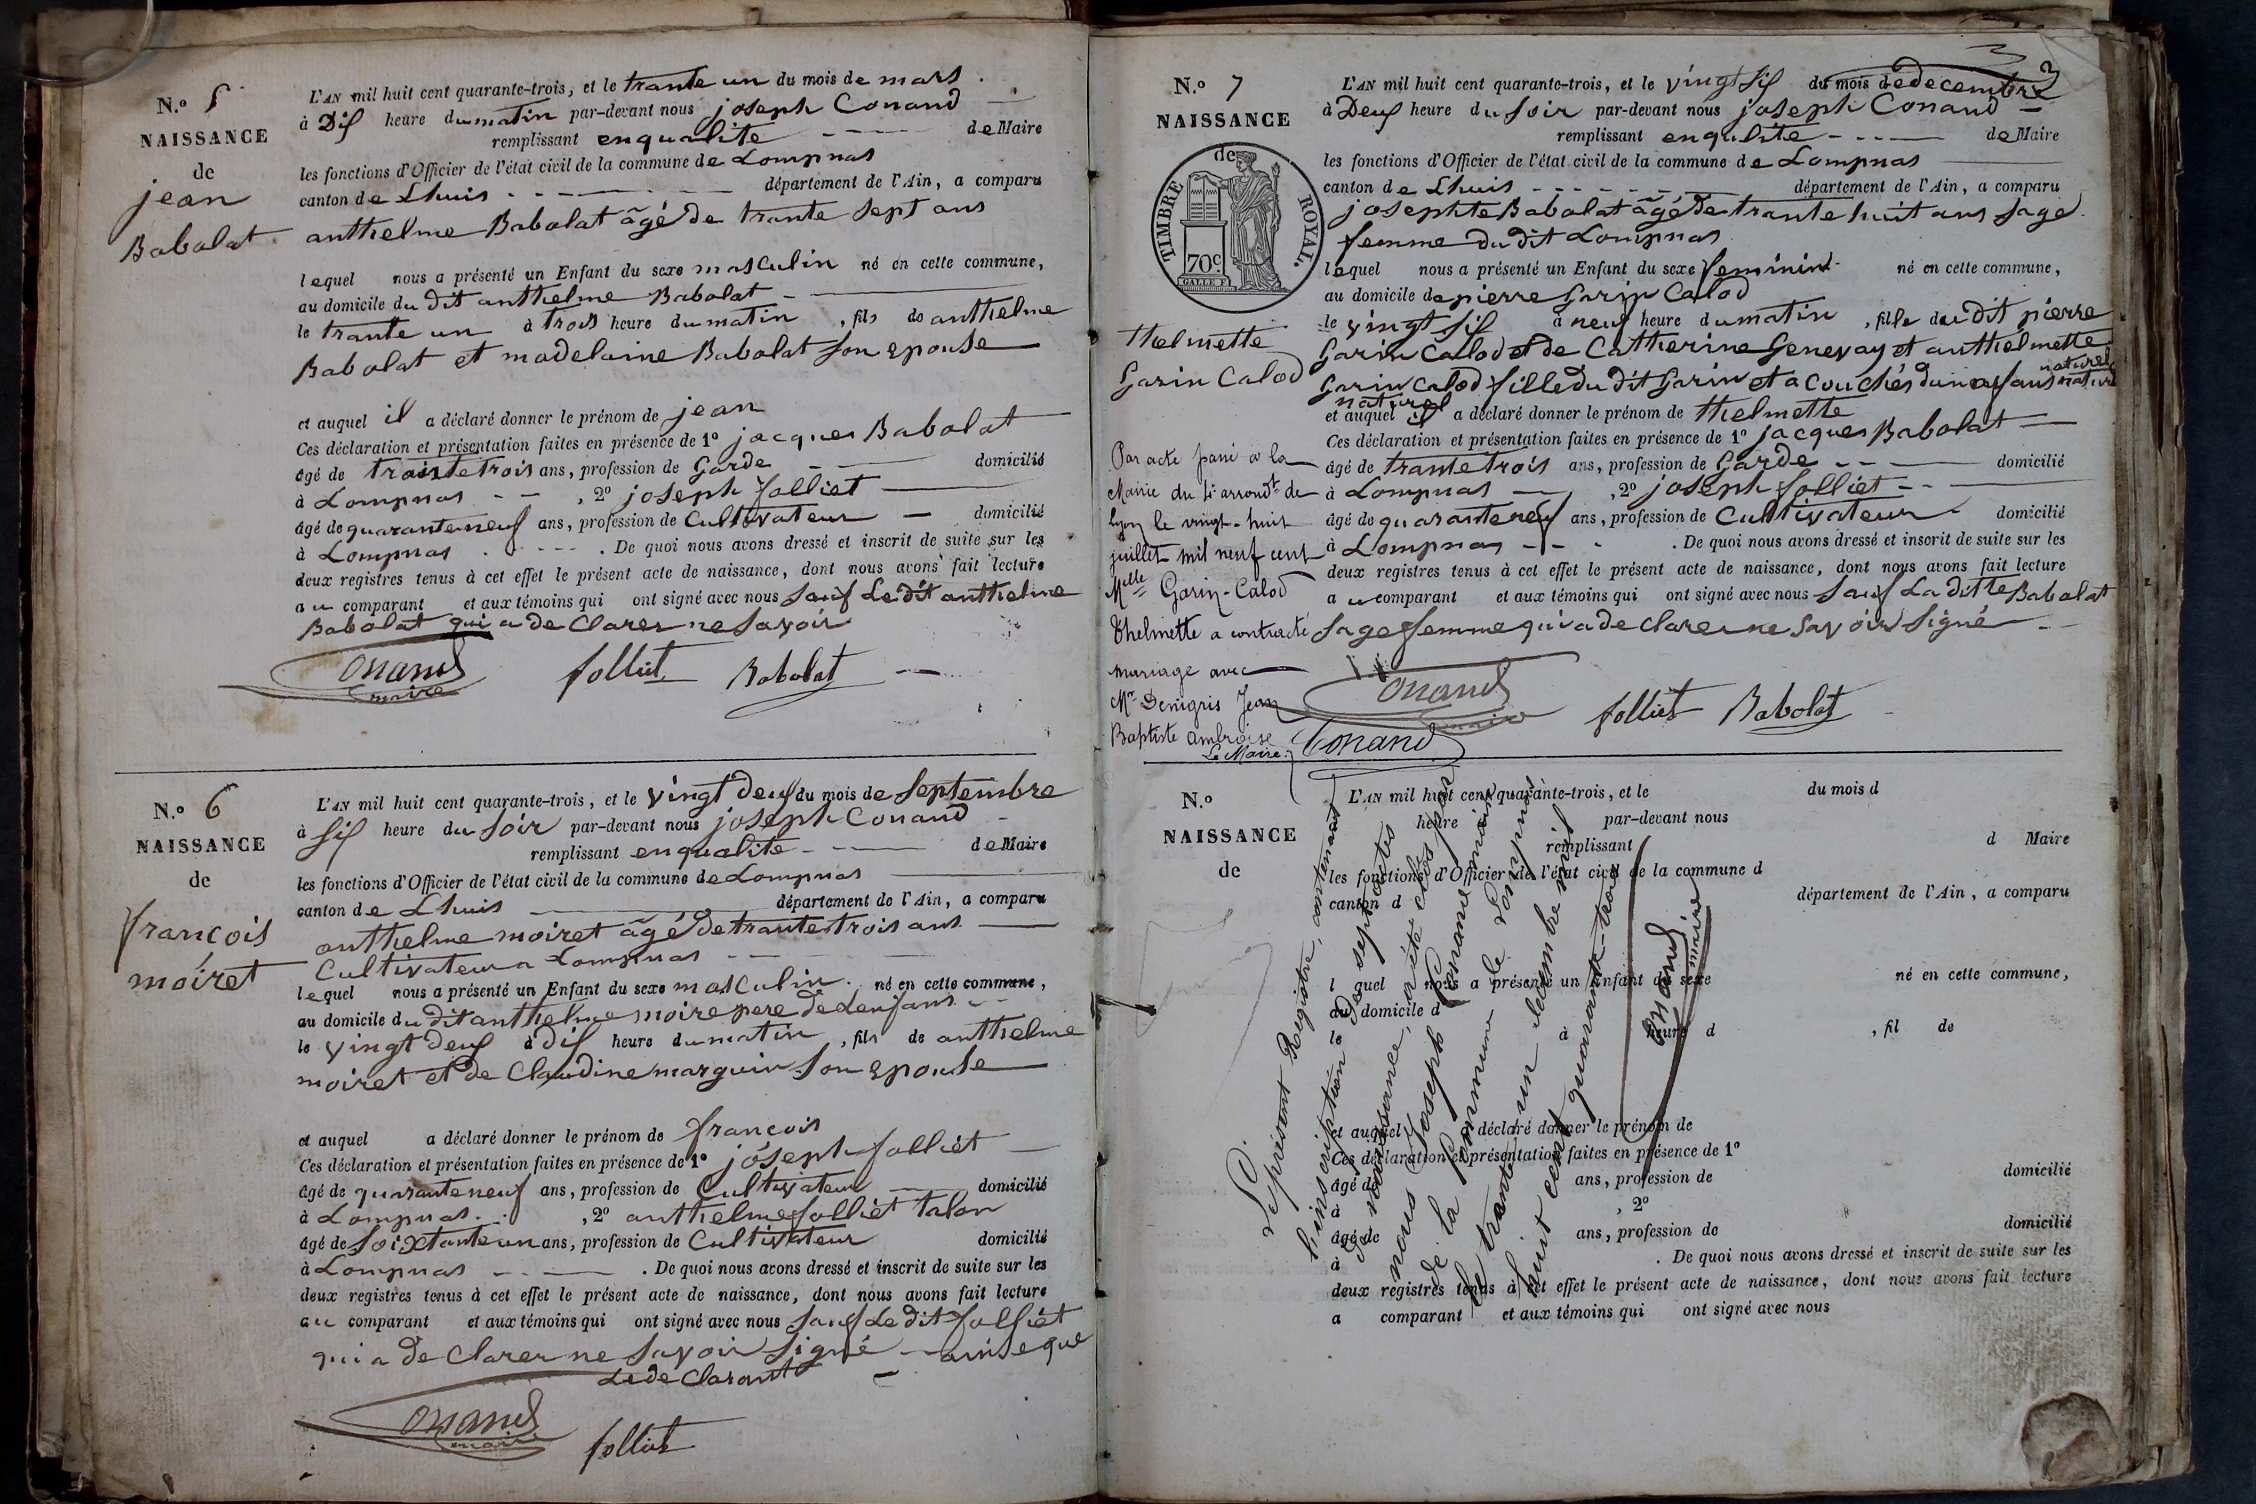 N.o 5
NAISSANCE
de
jean
Babolat
L'AN mil huit cent quarante-trois, et le trante un du mois de mars
à Dis heure du matin par-devant nous joseph Conand
remplissant enqualite de Maire
les fonctions d'Officier de l'état civil de la commune de Lompnas
canton de Lhuis département de l'Ain, a comparu
anthelme Babolat âgé de trante sept ans
lequel nous a présenté un Enfant du sexe masculin né en cette commune,
au domicile du dit anthelme Babolat
le trante un à trois heure du matin, fils de anthelme
Babolat et madelaine Babolat son epouse
et auquel il a déclaré donner le prénom de jean
Ces déclaration et présentation faites en présence de 1o jacques Babolat
âgé de trante trois ans, profession de Garde domicilié
à Lompnas, 2o joseph folliet
âgé de quaranteneuf ans, profession de Cultivateur domicilié
à Lompnas. De quoi nous avons dressé et inscrit de suite sur les
deux registres tenus à cet effet le présent acte de naissance, dont nous avons fait lecture
au comparant et aux témoins qui ont signé avec nous sauf Ledit anthelme
Babolat qui a de Clarer ne savoir
Conand maire folliet Babolat
N.o 6
NAISSANCE
de
françois
moiret
L'AN mil huit cent quarante-trois, et le vingt deus du mois de septembre
à sis heure du soir par-devant nous joseph Conand
remplissant enqualite de Maire
les fonctions d'Officier de l'état civil de la commune de Lompnas
canton de Lhuis département de l'Ain, a comparu
anthelme moiret âgé de trante trois ans
Cultivateur a Lompnas
lequel nous a présenté un Enfant du sexe masculin né en cette commune,
au domicile du dit anthelme moire pere de Lenfans
le vingt deus à dis heure du matin, fils de anthelme
moiret et de Claudine marguin son epouse
et auquel a déclaré donner le prénom de françois
Ces déclaration et présentation faites en présence de 1o joseph folliet
âgé de quaranteneuf ans, profession de Cultivateur domicilié
à Lompnas, 2o anthelme folliet talon
âgé de soixtante un ans, profession de Cultivateur domicilié
à Lompnas. De quoi nous avons dressé et inscrit de suite sur les
deux registres tenus à cet effet le présent acte de naissance, dont nous avons fait lecture
au comparant et aux témoins qui ont signé avec nous sauf Ledit folliet
qui a de Clarer ne savoir signé ainse que
Lede Clarant
Conand maire folliet
3
N.o 7
NAISSANCE
de
TIMBRE ROYAL.
70c
GALLE F.
thelmette
Garin Calod
L'AN mil huit cent quarante-trois, et le vingt sis du mois de decembre
à Deus heure du soir par-devant nous joseph Conand
remplissant enqulite de Maire
les fonctions d'Officier de l'état civil de la commune de Lompnas
canton de Lhuis département de l'Ain, a comparu
josephte Babolat âgé de trante huit ans sage
femme du dit Lompnas
lequel nous a présenté un Enfant du sexe feminin né en cette commune,
au domicile de pierre Garin Calod
le vingt sis à neuf heure du matin, fille du dit pierre
Garin Calod et de Catherine Genevay et anthelmette
Garin Calod fille du dit Garin et a couchés dun anfans naturel
naturel
et auquel il a déclaré donner le prénom de thelmette
Ces déclaration et présentation faites en présence de 1o jacques Babolat
âgé de trante trois ans, profession de Garde domicilié
à Lompnas, 2o joseph folliet
âgé de quaranteneuf ans, profession de Cultivateur domicilié
à Lompnas. De quoi nous avons dressé et inscrit de suite sur les
deux registres tenus à cet effet le présent acte de naissance, dont nous avons fait lecture
au comparant et aux témoins qui ont signé avec nous sauf La ditte Babolat
sage femme qui a de clarer ne savoir signé
Conand maire folliet Babolat
Par acte passé à la
Mairie du 4e arrondt de
Lyon le vingt-huit
juillet mil neuf cent
Melle Garin-Calod
Thelmette a contracté
mariage avec
Mr Denigris Jean
Baptiste ambroise
Le Maire Conand
N.o
NAISSANCE
de
L'AN mil huit cent quarante-trois, et le du mois d
heure par-devant nous
remplissant d Maire
les fonctions d'Officier de l'état civil de la commune d
canton d département de l'Ain, a comparu
l quel nous a présenté un Enfant du sexe né en cette commune,
au domicile d
le à heure d, fil de
et auquel déclaré donner le prénom de
Ces déclaration et présentation faites en présence de 1o
âgé de ans, profession de domicilié
à, 2o
âgé de ans, profession de domicilié
à. De quoi nous avons dressé et inscrit de suite sur les
deux registres tenus à cet effet le présent acte de naissance, dont nous avons fait lecture
a comparant et aux témoins qui ont signé avec nous
Le présent Registre, contenant
l'inscription de sept actes
de naissance, a été clos par
nous Joseph Conand maire
de la Commune de Lompnas
le trante un décembre mil
huit cent quarante-trois
Conand maire